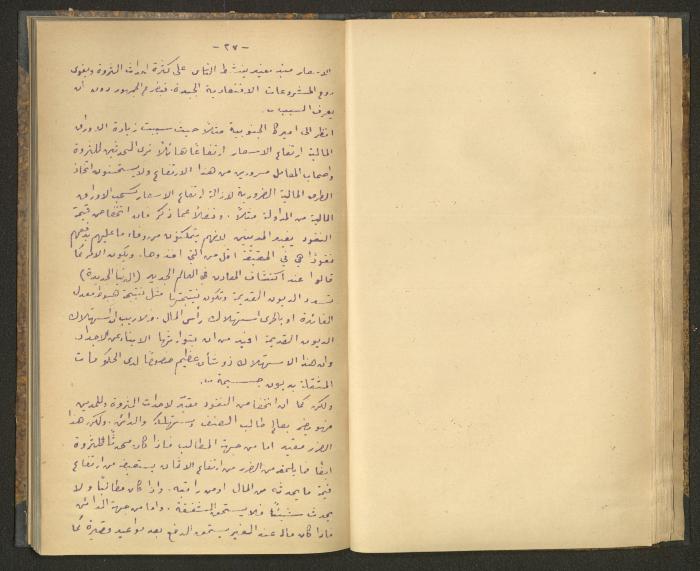 - ٢٧ -
الاسعار مبدء مفيد ينشط الناس على كثرة احداث الثروة ويقوى
روح المشروعات الاقتصادية الجيدة. فتنازع الجمهور دون ان
يعرف السبب
انظر الى اميركا الجنوبية مثلاً حيث سببت زيادة الاوراق
المالية ارتفاع الاسعار ارتفاعًا هائلاً نرى المحدثين للثروة
واصحاب المعامل مسرورين من هذا الارتفاع ولا يستحسنون اتخاذ
الطرق المالية الضرورية لازالة ارتفاع الاسعار كسحب الاوراق
المالية من المداولة مثلاً. وفضلاً عما ذكر فان انتخفاص قيمة
النقود يفيد المدينين لانهم يتمكنون من وفاء ما عليهم بدفعهم
نقودًا هي في الحقيقة اقل من التي اخذوها. وتكون الامر كما
قالوا عند اكتشاف المعادن في العالم الجديد (الدنيا الجديدة)
تسدد الديون القديمة وتكون نتيجتها مثل نتيجة هبوط معدل
الفائدة او بالحرى استهلاك رأس المال. ولا ريب ان استهلاك
الديون القديمة افيد من ان يتوارثها الابناء عن الاجداد
وان هذا الاستهلاك ذو شأن عظيم خصوصًا لدى الحكومات
المثقلة بديون جسيمة
ولكن كما ان انتخفاص النقود مفيد لاحداث الثروة وللمدين
فهو يضر بصالح طالب الصنف ومستهلكه والدائن. ولكن هذا
الضرر مقيد اما من جهة الطالب فاذا كان محدثًا للثروة
ايضًا ما يلحقه من الضرر من ارتفاع الاثمان يستعيضه من ارتفاع
قيمة ما يحدثه من المال او من راتبه. واذا كان مطالبًا ولا
يحدث شيئًا فلا يستحق الشفقة. واما من جهة الدائن
فاذا كان ماله عند الغير يستحق الدفع بعد مواعيد قصيرة كما